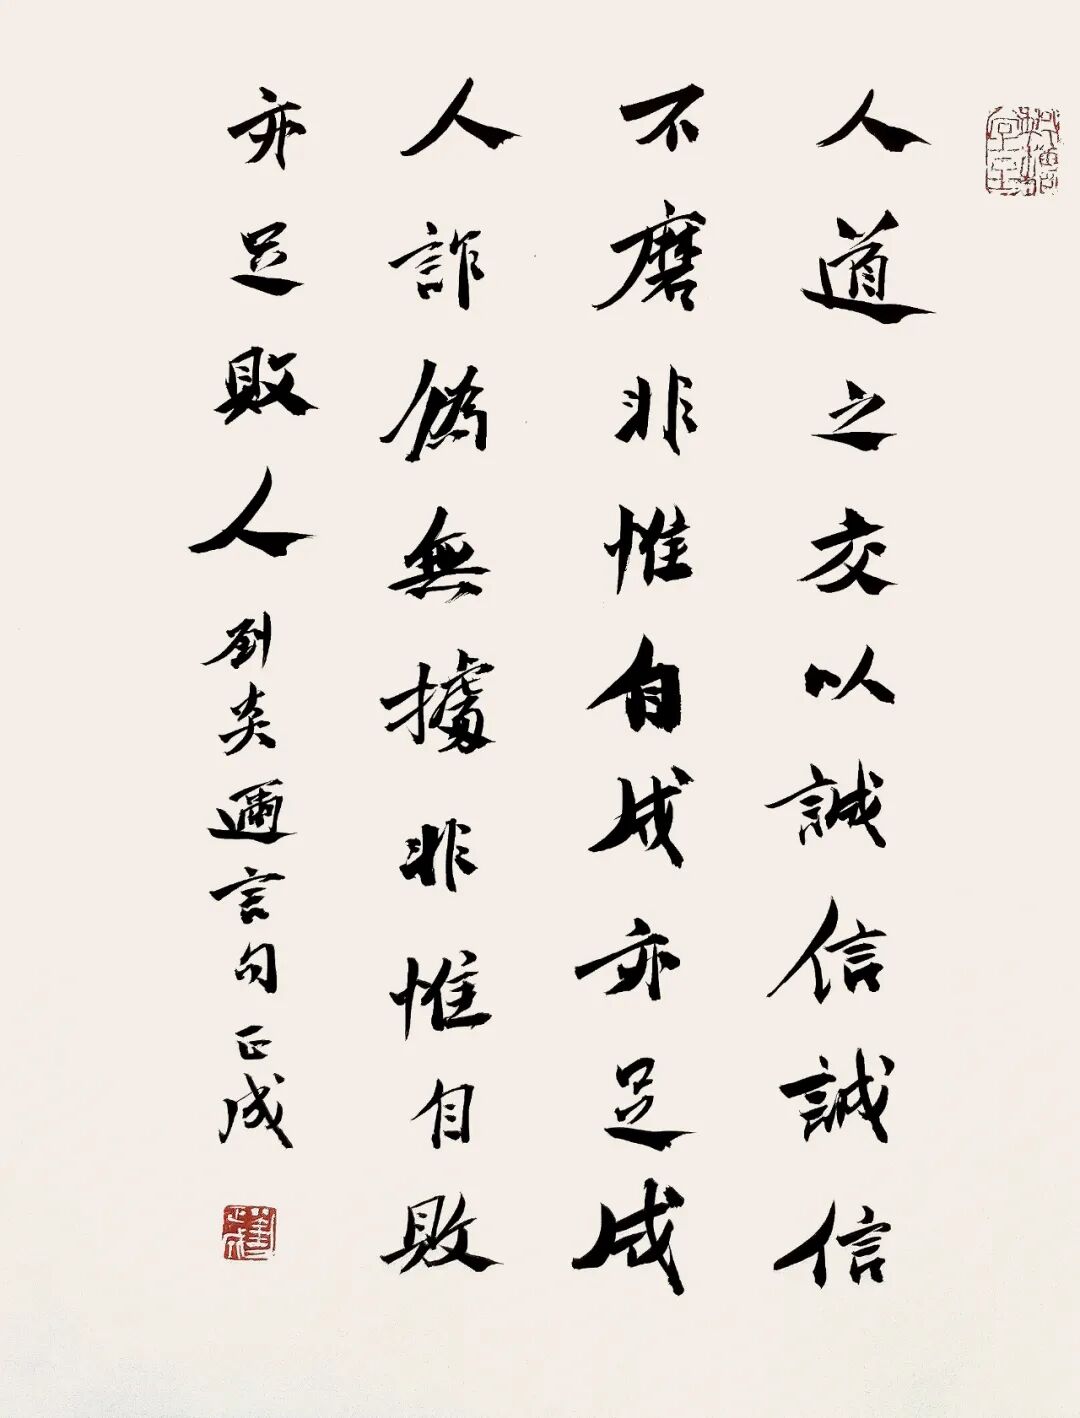 人道之交以誠信誠信
不磨非惟自成亦足成
人詐偽無據非惟自敗
亦足敗人劉炎邇言句正成